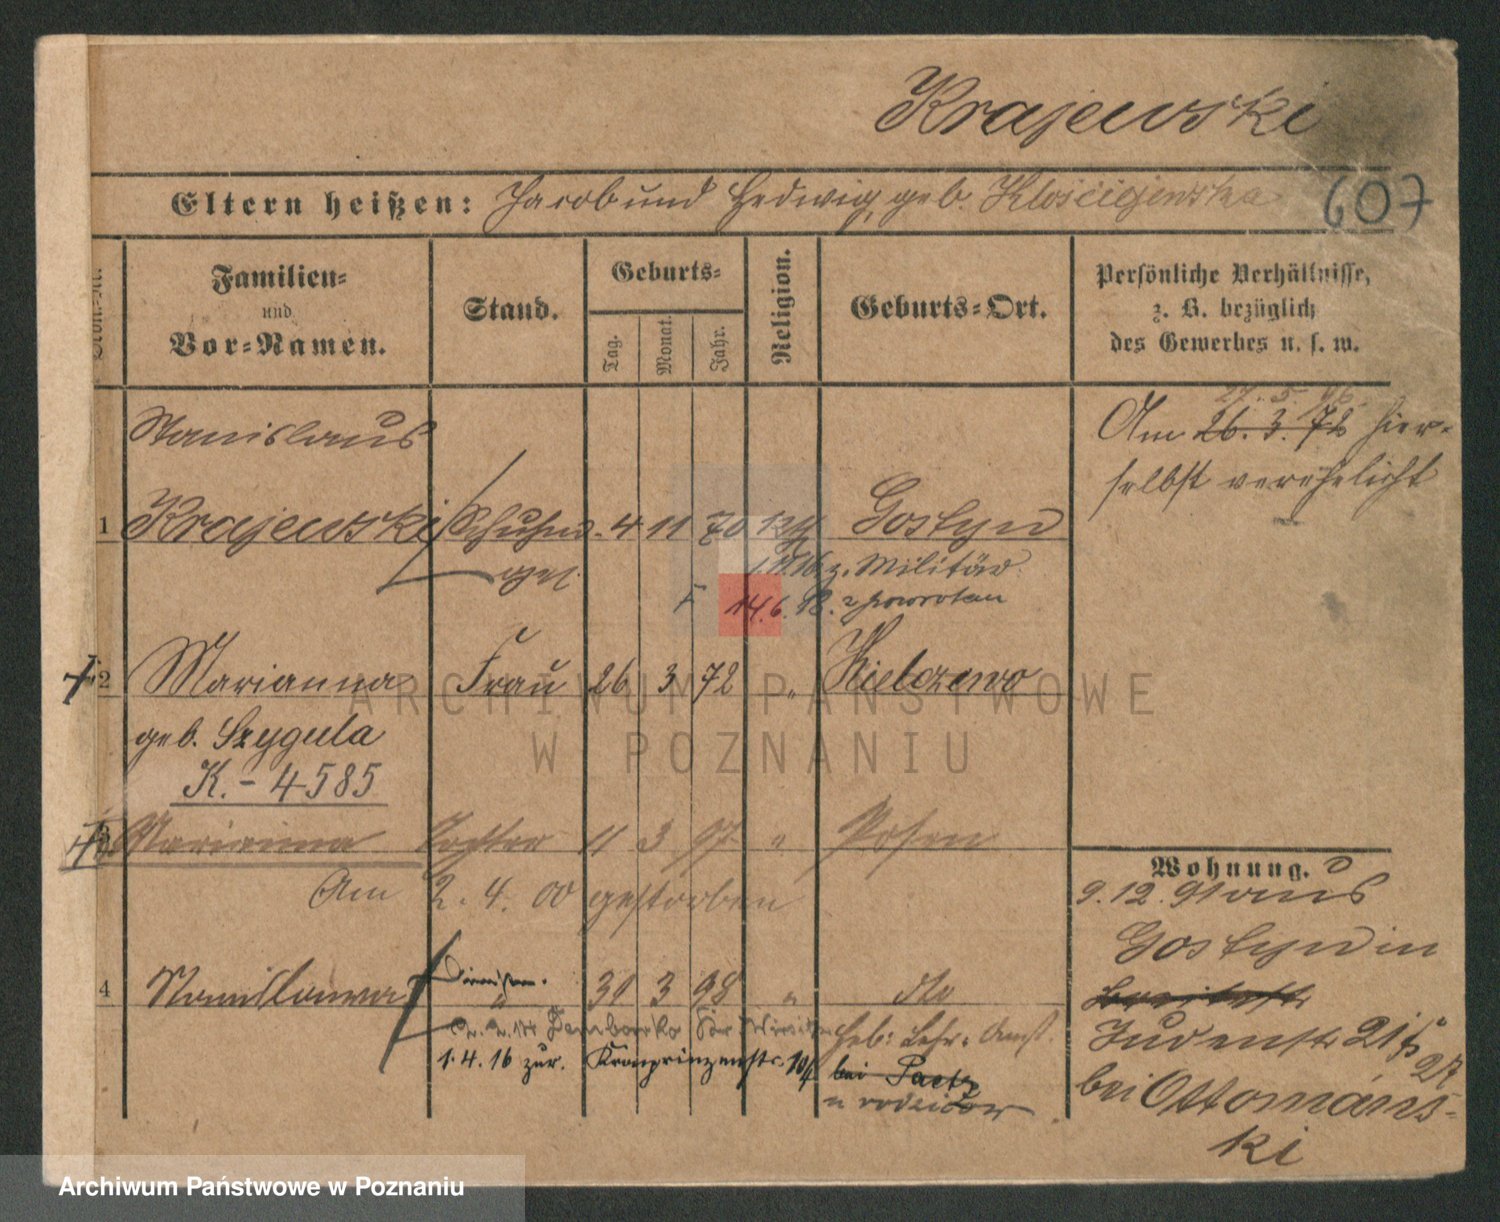 Krajewski
Eltern heißen: Jacob und Hedwig, geb. Klościejewska 607
Familien- und Vor-Namen. Stand. Geburts- Tag. Monat. Jahr. Religion. Geburts-Ort. Persönliche Verhältnisse, z. B. bezüglich des Gewerbes u. s. w.
Stanislaus
27. 5. 96.
Am 26. 3. 72 hier-
selbst verehelicht
1 Krajewski Schuhm. 4 11 70 kth Gostyn
ges. z. Militär.
14.6.18. z powrotem
2 Marianna Frau 26 3 72 " Kielczewo
geb. Szygula
K.- 4585
3 Marianna Tochter 11 3 97 " Posen
Am 2. 4. 00 gestorben
Wohnung.
9. 12. 91 aus
Gostyn in
4 Stanislawa " 30 3 98 " dto
Judenstr 21
1. 4. 16 zur. Kronprinzenstr.
bei Paetz
u rodziców
27
bei Ottomańs-
ki
ARCHIWUM PAŃSTWOWE
W POZNANIU
Archiwum Państwowe w Poznaniu